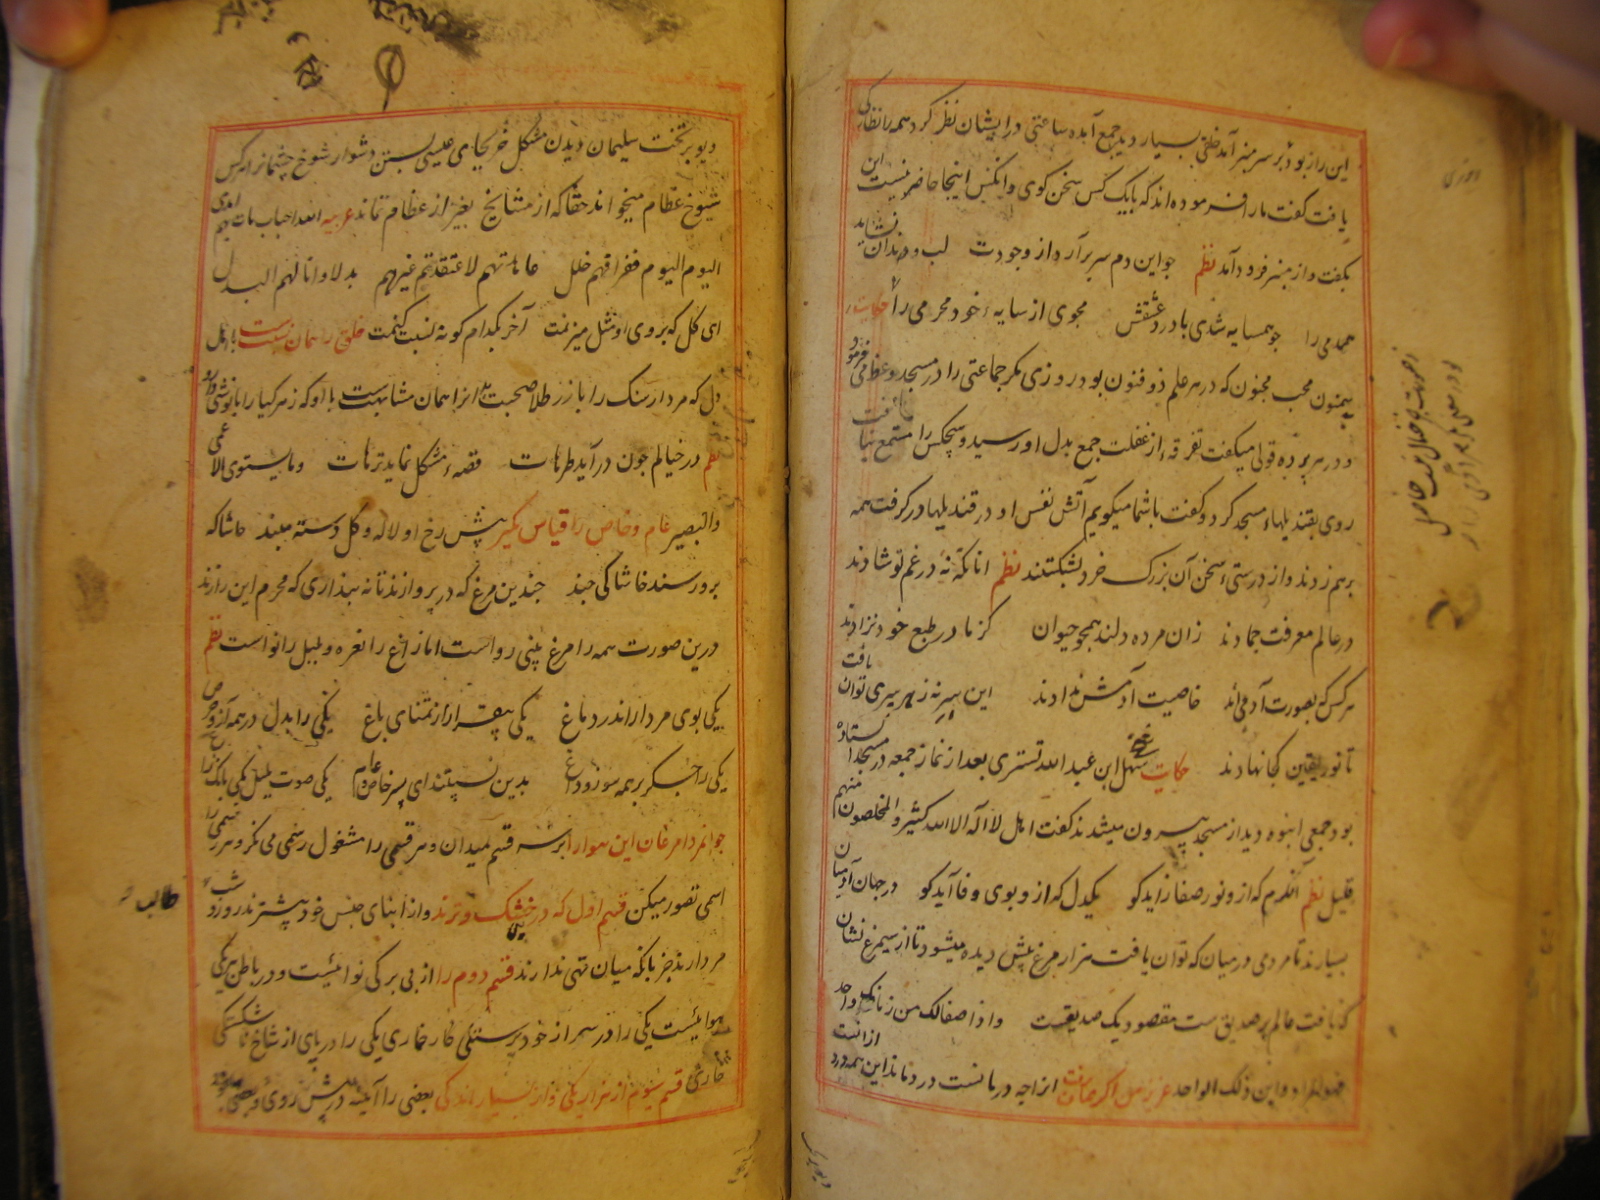 این راز بود بر سر منبر آمد خلقی بسیار دید جمع آمده ساعتی در ایشان نظر کرد همه را نظارگی
یافت گفت ما را فرموده اند که با یک کس سخن کوی و آنکس اینجا حاضر نیست این
بگفت و از منبر فرود آمد نظم جو این دم سر برآرد از وجودت لب و دندان نشاید
همدمی را جو همسایه شدی با درد عشقش مجوی از سایهٔ خود محرمی را حکایت
سمنون محب مجنون که در هر علم ذو فنون بود روزی مکر جماعتی را در مسجد وعظ می فرمود
و در هر پرده قولی میکفت تفرقه از غفلت جمع بدل او رسید و هیچکس را مستمع نیافت
روی بقندیلهاء مسجد کرد و کفت با شما میکویم آتش نفس او در قندیلها در کرفت همه
بر هم زدند و از درستی سخن آن بزرک خرد بشکستند نظم آنانکه نه در غم تو شادند
در عالم معرفت جمادند زان مرده دلند همجو حیوان کز مادر طبع خود نزادند
هر کس که بصورت آدمی اند خاصیت آدمش ندادند این سر نه ز هر سری توان یافت
تا نور یقین کجا نهادند حکایت شیخ سهل ابن عبد الله تستری بعد از نماز جمعه در مسجد استاده
بود جمعی انبوه دید از مسجد بیرون میشدند کفت اهل لا اله الا الله کثیر و المخلصون منهم
قلیل نظم آنکرم که ازو نور صفا زاید کو یکدل که ازو بوی وفا آید کو در جهان آدمیان
بسیارند تا مردی در میان که توان یافت هزار مرغ پیش دیده میشود تا از سیمرغ نشان
که یافت عالم پر صدیق ست مقصود یک صدیقست و اذا صفا لک من زمانک واحد
فهو المراد و این ذلک الواحد عزیز من از آنست از اجه درمانست در دماند این همه درد
دیو بر تخت سلیمان دیدن مشکل خر بجای عیسی بستن دشوار شوخ چشمانرا هر کس
شیوخ عظام میخواند حقا که از مشایخ بغیر از عظام نماند عربیه
الیوم الیوم فقراقهم خلل لا عتقدتم غیرهم بدلا و انا لهم البدل
ای کل که بروی او مثل میزنمت آخر بکدام کونه نسبت کنمت خلق را همان نسبت است با اهل
دل که مردار سنک را با زر طلا صحبت انرا همان مشابهت است با او که زهر کیا را با نوشی دارو
نظم در خیالم جون در آید طرهات قصهٔ مشکل نماید ترهات و ما یستوی الاعمی
و البصیر عام و خاص را قیاس مکیر پیش رخ او لاله و گل دسته مبند حاشا که
برو رسند خاشاکی جند جندین مرغ که در پروازند تا نه پنداری که محرم این رازند
درین صورت همه را مرغ بینی رواست اما زاغ را نغره و بلبل را نواست نظم
یکی بوی مردار اندر دماغ یکی بیقرار از تمنای باغ یکی را بدل در همه آز و حرص
یکی را جکر بر همه سوز و داغ بدین نسبتند ای پسر خاص و عام یکی صوت بلبل یکی بانک زاغ
جوانمردا مرغان این هوا را بر سه قسم میدان و هر قسمی را مشغول رسمی می نکر و هر رسمی را
اسمی تصور میکن قسم اول که در خشک و ترند و از ابنای جنس خود بیشترند روز و شب
مردارند جز بانکه میان تهی ندارند قسم دوم را از بی برکی نوائیست و در باطن هر یکی
هوائیست یکی را در سر از خود پرستی کار خماری یکی را در پای از شاخ شکستگی
خاری قسم سیوم از هزار یکی و از بسیار اندکی بعضی را آینه در پیش روی و بعضی
طالب